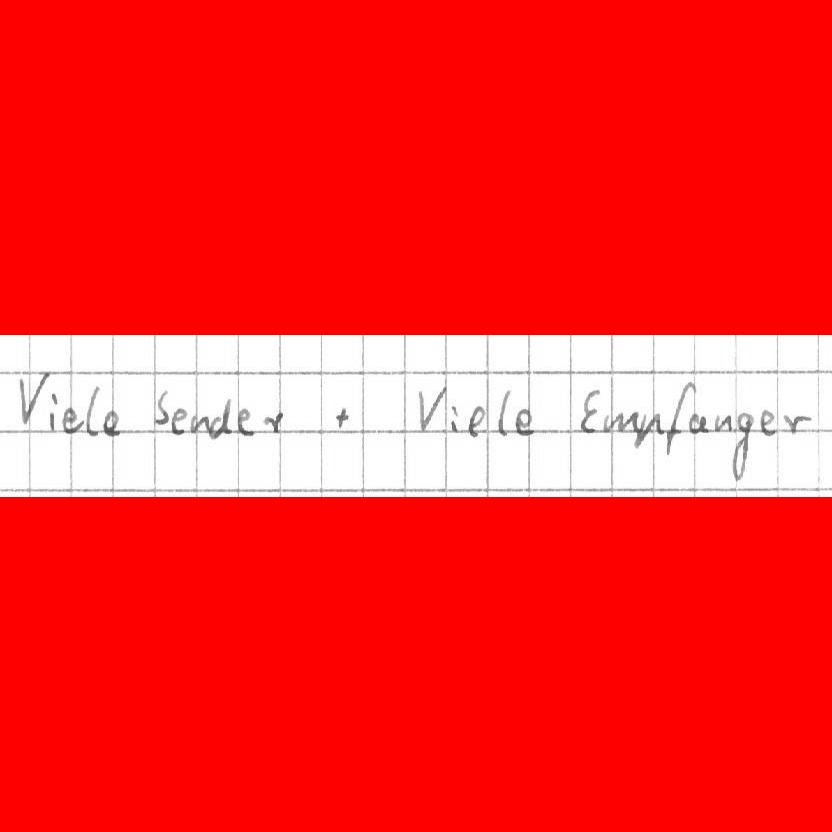 Viele Sender + Viele Empfanger